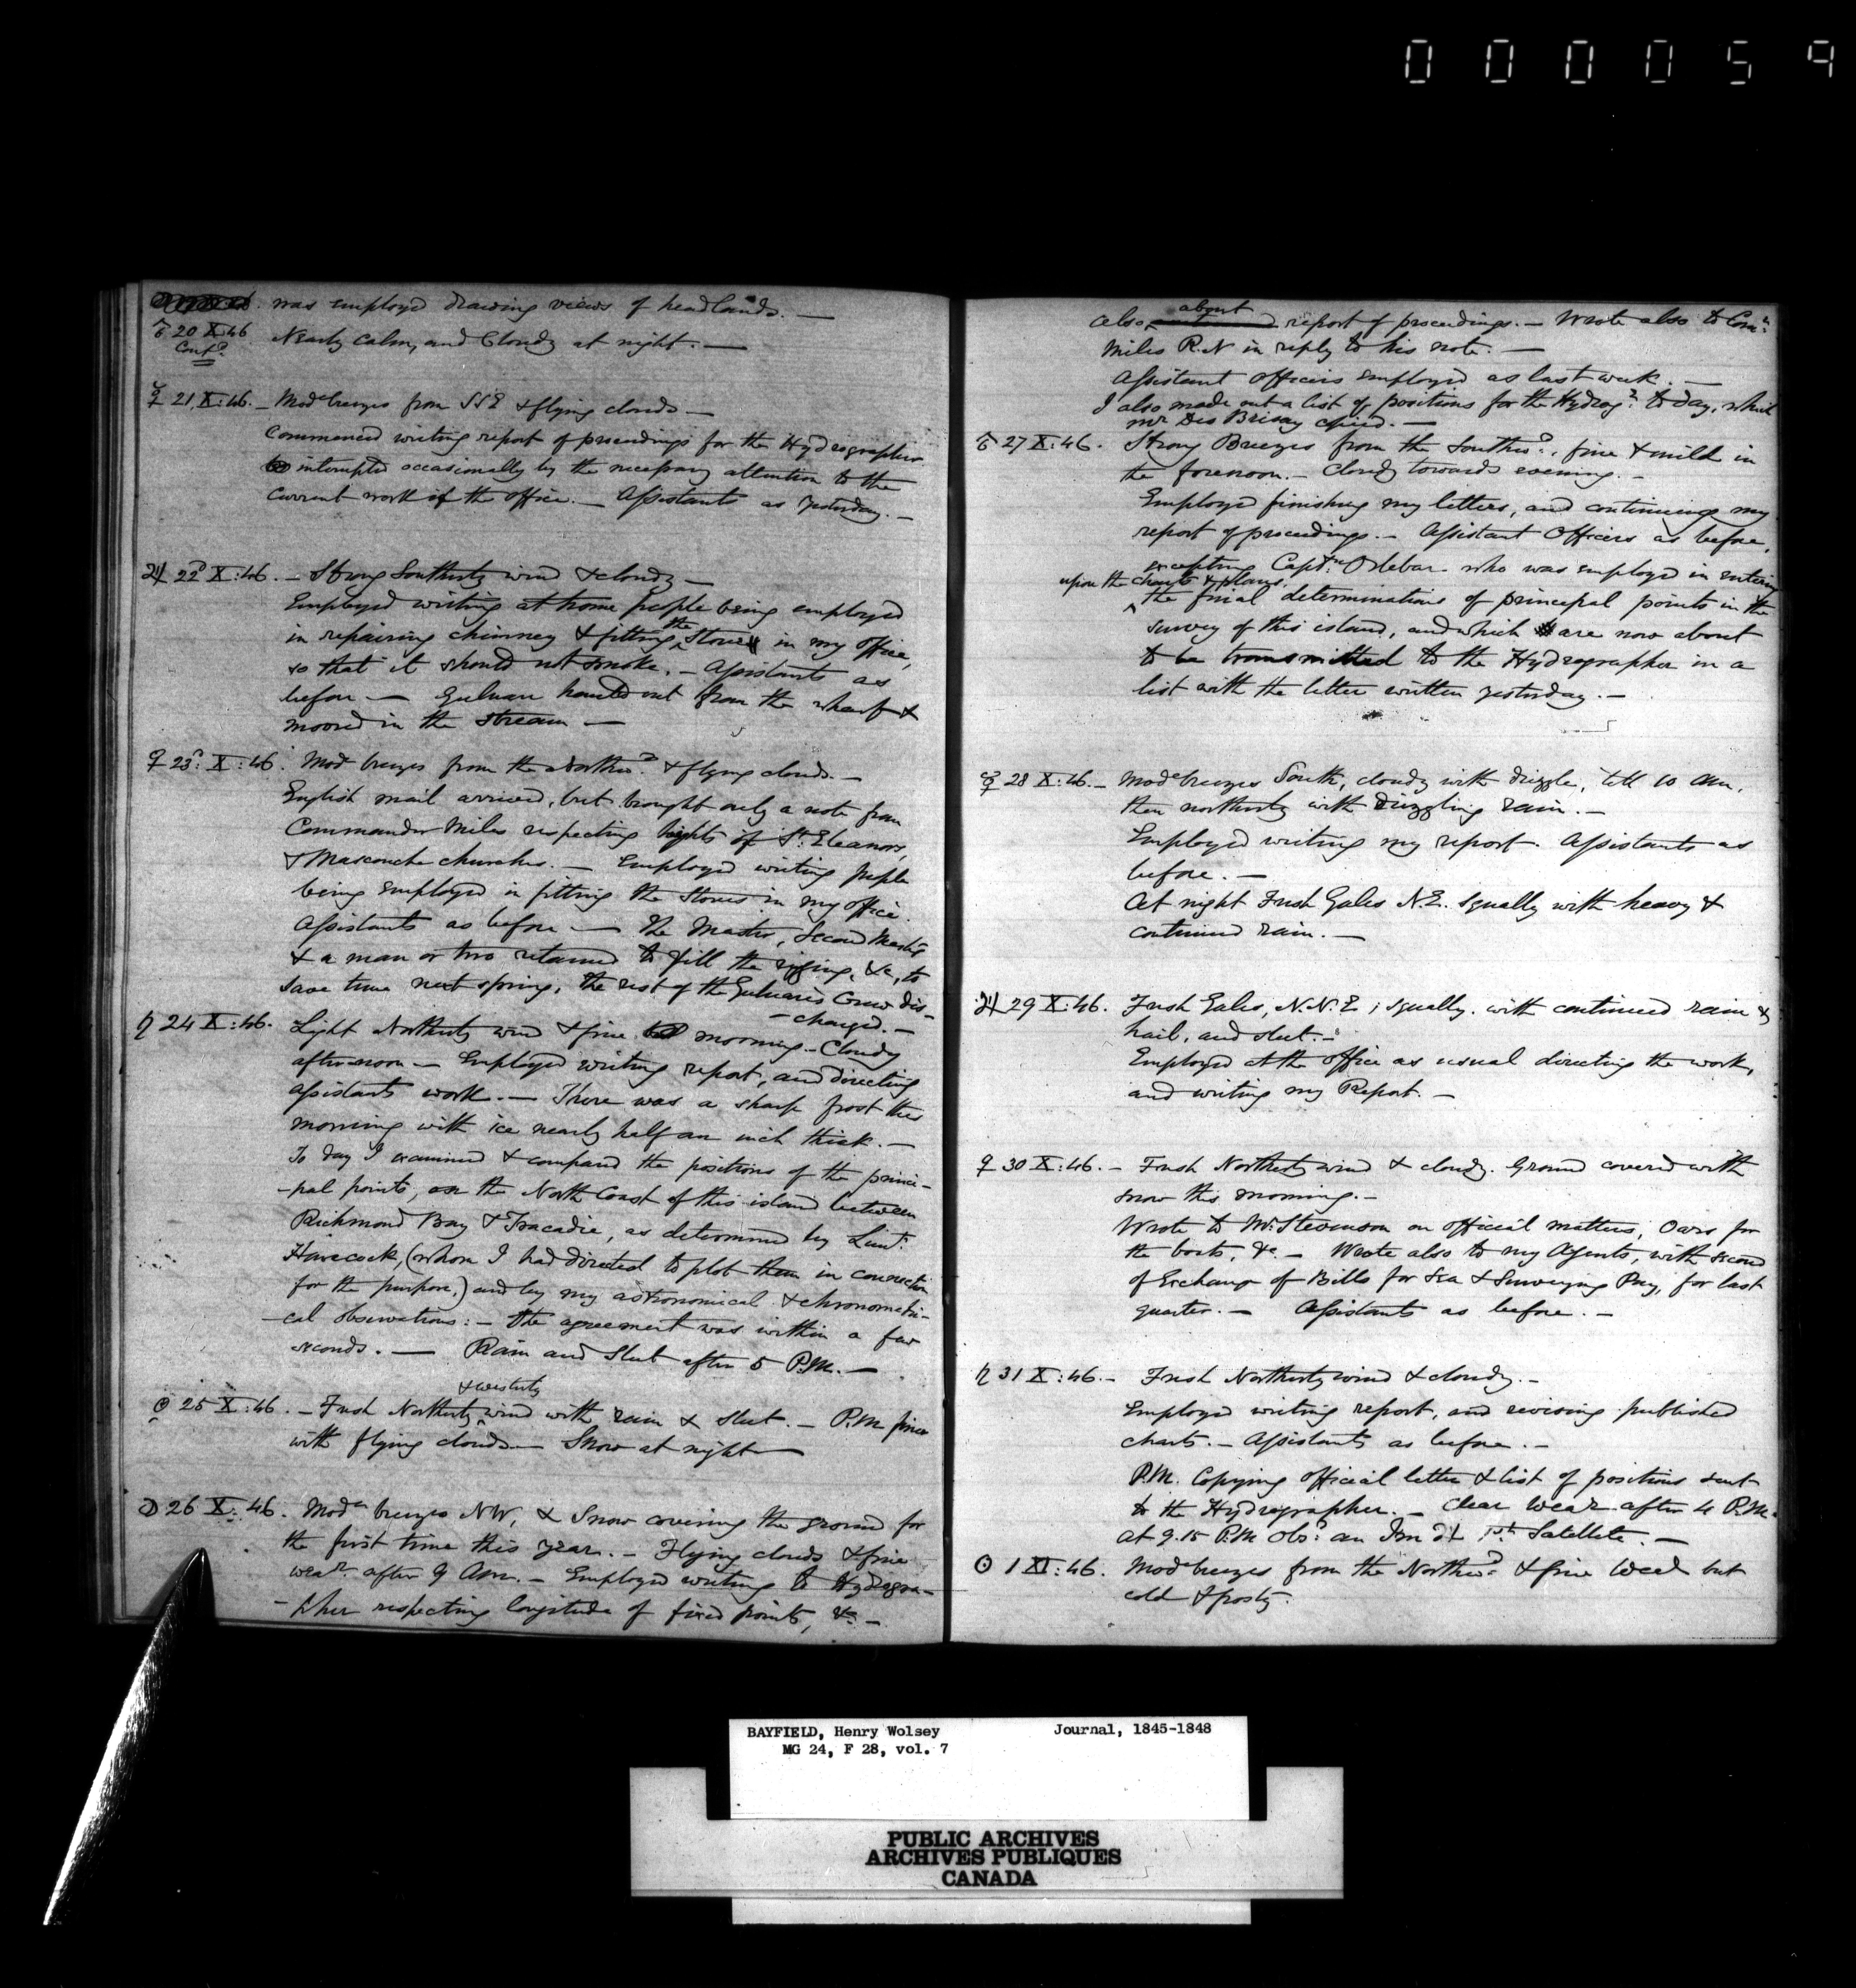 000059
was employed drawing views of headlands. —
♂ 20 X:46
Contd.
Nearly calm, and Cloudy at night. —
☿ 21 X:46. – Mode breezes from SSE & flying clouds —
Commenced writing report of proceedings for the Hydrographer
interupted occasionally by the necessary attention to the
current work of the office. — Assistants as yesterday. –
♃ 22d X:46. – Strong Southerly wind & cloudy –
Employed writing at home people being employed
in repairing chimney & fitting the Stove in my office,
so that it should not smoke. – Assistants as
before — Gulnare hauled out from the wharf &
moored in the stream —
♀ 23d: X:46. Mod breezes from the Northwd. & flying clouds. –
English mail arrived, but brought only a note from
Commander Miles respecting heights of St. Eleanors,
& Mascouche churches. — Employed writing people
being employed in fitting the Stoves in my office.
Assistants as before — The Master, Second Master
& a man or two retained to fill the rigging, &c, to
save time next spring, the rest of the Gulnare's Crew dis-
-charged. –
♄ 24 X:46. Light Northerly wind & fine morning – Cloudy
afternoon – Employed writing report, and directing
assistants work. — There was a sharp frost this
morning with ice nearly half an inch thick. –
To day I examined & compared the positions of the princi-
-pal points, on the North Coast of this island between
Richmond Bay & Tracadie, as determined by Lieut.
Hancock, (whom I had directed to plot them in connection
for the purpose,) and by my astronomical & chronometri-
-cal observations: – the agreement was within a few
seconds. — Rain and Sleet after 5 P.M. —
& westerly
☉ 25 X:46. – Fresh Northerly wind with rain & sleet. – P.M fine
with flying clouds — Snow at night —
☽ 26 X:46. Mode breezes NW, & Snow covering the ground for
the first time this year. – Flying clouds & fine
wear. after 9 Am. – Employed writing to Hydrogra-
-pher respecting longitude of fixed points, &c –
about
also report of proceedings. – Wrote also to Comr.
Miles R.N in reply to his note. —
Assistant officers employed as last week. –
I also made out a list of positions for the Hydrogr. to day, which
Mr Des Brisay copied. –
♂ 27 X:46. Strong Breezes from the Southwd., fine & mild in
the forenoon. – Cloudy towards evening. –
Employed finishing my letters, and continuing my
report of proceedings. – Assistant Officers as before,
excepting Captn. Orlebar who was employed in entering
upon the charts & plans.
the final determinations of principal points in the
survey of this island, and which are now about
to be transmitted to the Hydrographer in a
list with the letter written yesterday. –
☿ 28 X:46. – Mode breezes South, cloudy with drizzle, till 10 Am,
then northerly with drizzling rain. –
Employed writing my report. Assistants as
before. –
At night Fresh Gales N.E. Squally with heavy &
continued rain. —
♃ 29 X:46. Fresh Gales, N.N.E; squally, with continued rain &
hail, and sleet. –
Employed at the office as usual directing the work,
and writing my Report. –
♀ 30 X:46. – Fresh Northerly wind & cloudy. Ground covered with
snow this morning. –
Wrote to Mr. Stevenson on official matters, Oars for
the boats, &c. – Wrote also to my Agents, with second
of Exchange of Bills for Sea & Surveying Pay, for last
quarter. – Assistants as before. –
♄ 31 X:46. – Fresh Northerly wind & cloudy. –
Employed writing report, and revising published
charts. – Assistants as before. –
P.M. Copying official letter & list of positions sent
to the Hydrographer. – Clear wear. after 4 P.M.
At 9.15 P.M obsd. an Im ♃ 1st Satellite. –
☉ 1 XI:46. Mode breezes from the Northwd. & fine but
cold & frosty.
BAYFIELD, Henry Wolsey Journal, 1845-1848
MG 24, F 28, vol. 7
PUBLIC ARCHIVES
ARCHIVES PUBLIQUES
CANADA